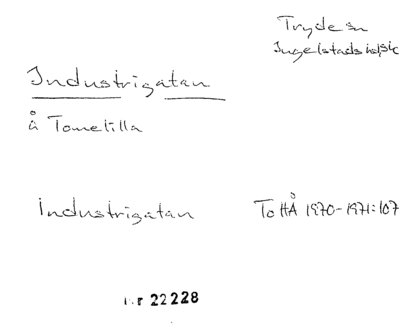 Tryde sn
Ingelstads hd, sk
Industrigatan
å Tomelilla
Industrigatan ToHÅ 1970-1971:107
22228